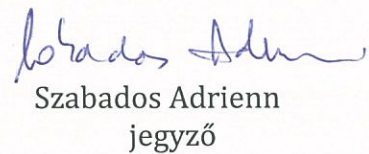 Szabados Adrienn
Szabados Adrienn
jegyző